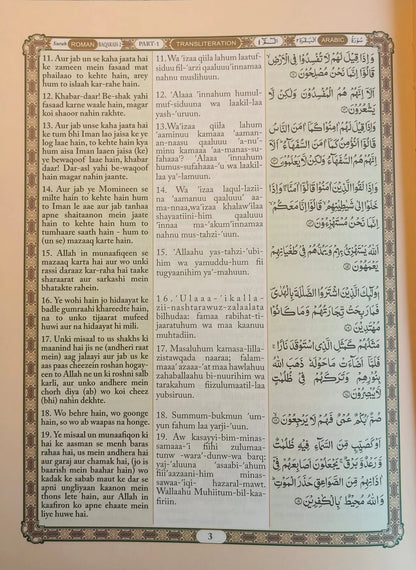 Surah ROMAN BAQARAH 2 PART-1 TRANSLITERATION ARABIC
11. Aur jab un se kaha jaata hai
ke zameen mein fasaad mat
phailaao to kehte hain, arey
hum to islaah kar-rahe hain.
12. Khabar-daar! Be-shak yahi
fasaad karne waale hain, magar
koi shaoor nahin rakhte.
13. Aur jab un se kaha jaata hai
ke tum bhi Iman lao jaisa ke ye
log laae hain, to kehte hain kya
hum aisa Iman laaen jaisa (ke)
ye bewaqoof laae hain, khabar
daar! Dar-asl yahi be-waqoof
hain magar nahin jaante.
14. Aur jab ye Momineen se
milte hain to kehte hain hum
to Iman le aae aur jab tanhaa
apne shaitaanon mein jaate
hain to kehte hain hum to
tumhaare saath hain - hum
(un se) mazaaq karte hain.
15. Allah in munaafiqeen se
mazaaq karta hai aur wo unki
rassi daraaz kar-raha hai taake
sharaarat aur sarkashi mein
bhatakte rahein.
16. Ye wohi hain jo hidaayat ke
badle gumraahi khareedte hain,
na to unko tijaarat mein nafa
huwi aur na hidaayat hi mili.
17. Unki misaal to us shakhs ki
maanind hai jis ne (andheri raat
mein) aag jalaayi aur jab us ke
aas paas cheezein roshan hogay-
een to Allah ne un ki roshni salb
karli, aur unko andhere mein
chorh diya (ab) wo koi cheez
(bhi) nahin dekhte.
18. Wo behre hain, wo goonge
hain, so wo ab waapas na honge.
19. Ye misaal un munaafiqon ki
hai ke aasman se menh baras
rahaa hai, us mein andhera hai
aur garaj aur chamak hai, (jo is
baarish mein baahar hain) wo
kadak ke sabab maut ke dar se
apni ungliyaan kaanon mein
thons lete hain, aur Allah in
kaafiron ko apne ehaate mein
liye huwe hai.
11. Wa 'izaa qiila lahum laatuf-
siduu fil-'arzi qaaluuu'innamaa
nahnu muslihuun.
12. 'Alaaa 'innahum humul-
muf-siduuna wa laakil-laa
yash-'uruun.
13.Wa'izaa qiila lahum
'aaminuu kamaaa 'aaman-
an-naasu qaaluuu 'a-nu'-
minu kamaaa 'aa-manas-su-
fahaaa? 'Alaaa 'innahum
humus-sufahaaa-'u wa laakil-
laa ya'-lamuun.
14. Wa 'izaa laqul-lazii-
na 'aamanuu qaaluuu 'aa-
ma-nnaa,wa'izaa khalaw'ilaa
shayaatiini-him qaaluuu
'innaa ma-'akum'innamaa
nahnu mus-tahzi-'uun.
15. 'Allaahu yas-tahzi-'ubi-
him wa yamuddu-hum fii
tugyaanihim ya'-mahuun.
16. 'Ulaaa-'ikalla-
zii-nashtarawuz-zalaalata
bilhudaa: famaa rabihat-ti-
jaaratuhum wa maa kaanuu
muhtadiin.
17. Masaluhum kamasa-lilla-
zistawqada naaraa; falam-
maaa 'azaaa-'at maa hawlahuu
zahaballaahu bi-nuurihim wa
tarakahum fiizulumaatil-laa
yubsiruun.
18. Summum-bukmun 'um-
yun fahum laa yarji-'uun.
19. Aw kasayyi-bim-minas-
samaaa-'i fiihi zulumaa-
tunw -wara'-dunw-wa barq;
yaj-'aluuna 'asaabi-'ahum
fiii'aazaani-him minas-
sawaa-'iqi hazaral-mawt.
Wallaahu Muhiitum-bil-kaa-
firiin.
وَإِذَا قِيلَ لَهُمْ لَا تُفْسِدُوا فِي الْأَرْضِ
قَالُوا إِنَّمَا نَحْنُ مُصْلِحُونَ
أَلَا إِنَّهُمْ هُمُ الْمُفْسِدُونَ وَلَٰكِنْ لَا
يَشْعُرُونَ
وَإِذَا قِيلَ لَهُمْ آمِنُوا كَمَا آمَنَ النَّاسُ
قَالُوا أَنُؤْمِنُ كَمَا آمَنَ السُّفَهَاءُ أَلَا
إِنَّهُمْ هُمُ السُّفَهَاءُ وَلَٰكِنْ لَا يَعْلَمُونَ
وَإِذَا لَقُوا الَّذِينَ آمَنُوا قَالُوا آمَنَّا وَإِذَا
خَلَوْا إِلَىٰ شَيَاطِينِهِمْ قَالُوا إِنَّا مَعَكُمْ
إِنَّمَا نَحْنُ مُسْتَهْزِئُونَ
اللَّهُ يَسْتَهْزِئُ بِهِمْ وَيَمُدُّهُمْ فِي طُغْيَانِهِمْ
يَعْمَهُونَ
أُولَٰئِكَ الَّذِينَ اشْتَرَوُا الضَّلَالَةَ بِالْهُدَىٰ
فَمَا رَبِحَتْ تِجَارَتُهُمْ وَمَا كَانُوا
مُهْتَدِينَ
مَثَلُهُمْ كَمَثَلِ الَّذِي اسْتَوْقَدَ نَارًا
فَلَمَّا أَضَاءَتْ مَا حَوْلَهُ ذَهَبَ اللَّهُ
بِنُورِهِمْ وَتَرَكَهُمْ فِي ظُلُمَاتٍ
لَا يُبْصِرُونَ
صُمٌّ بُكْمٌ عُمْيٌ فَهُمْ لَا يَرْجِعُونَ
أَوْ كَصَيِّبٍ مِنَ السَّمَاءِ فِيهِ ظُلُمَاتٌ
وَرَعْدٌ وَبَرْقٌ يَجْعَلُونَ أَصَابِعَهُمْ فِي
آذَانِهِمْ مِنَ الصَّوَاعِقِ حَذَرَ الْمَوْتِ
وَاللَّهُ مُحِيطٌ بِالْكَافِرِينَ
3